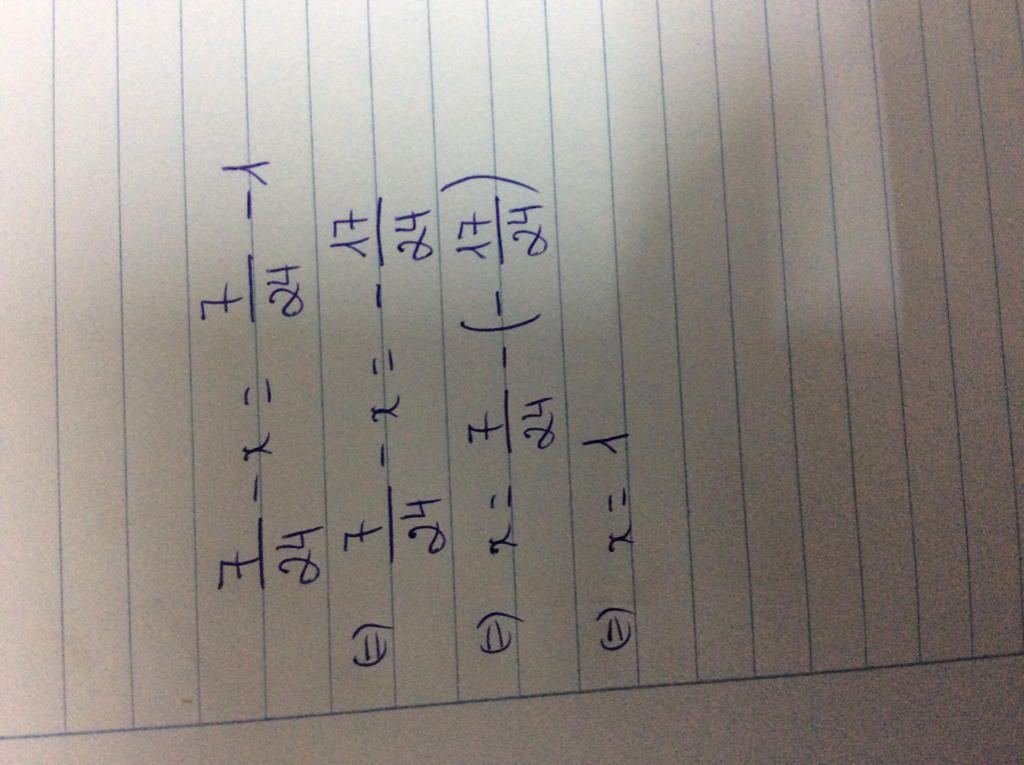 7/24 - x = 7/24 - 1
(=) 7/24 - x = - 17/24
(=) x = 7/24 - (- 17/24)
(=) x = 1